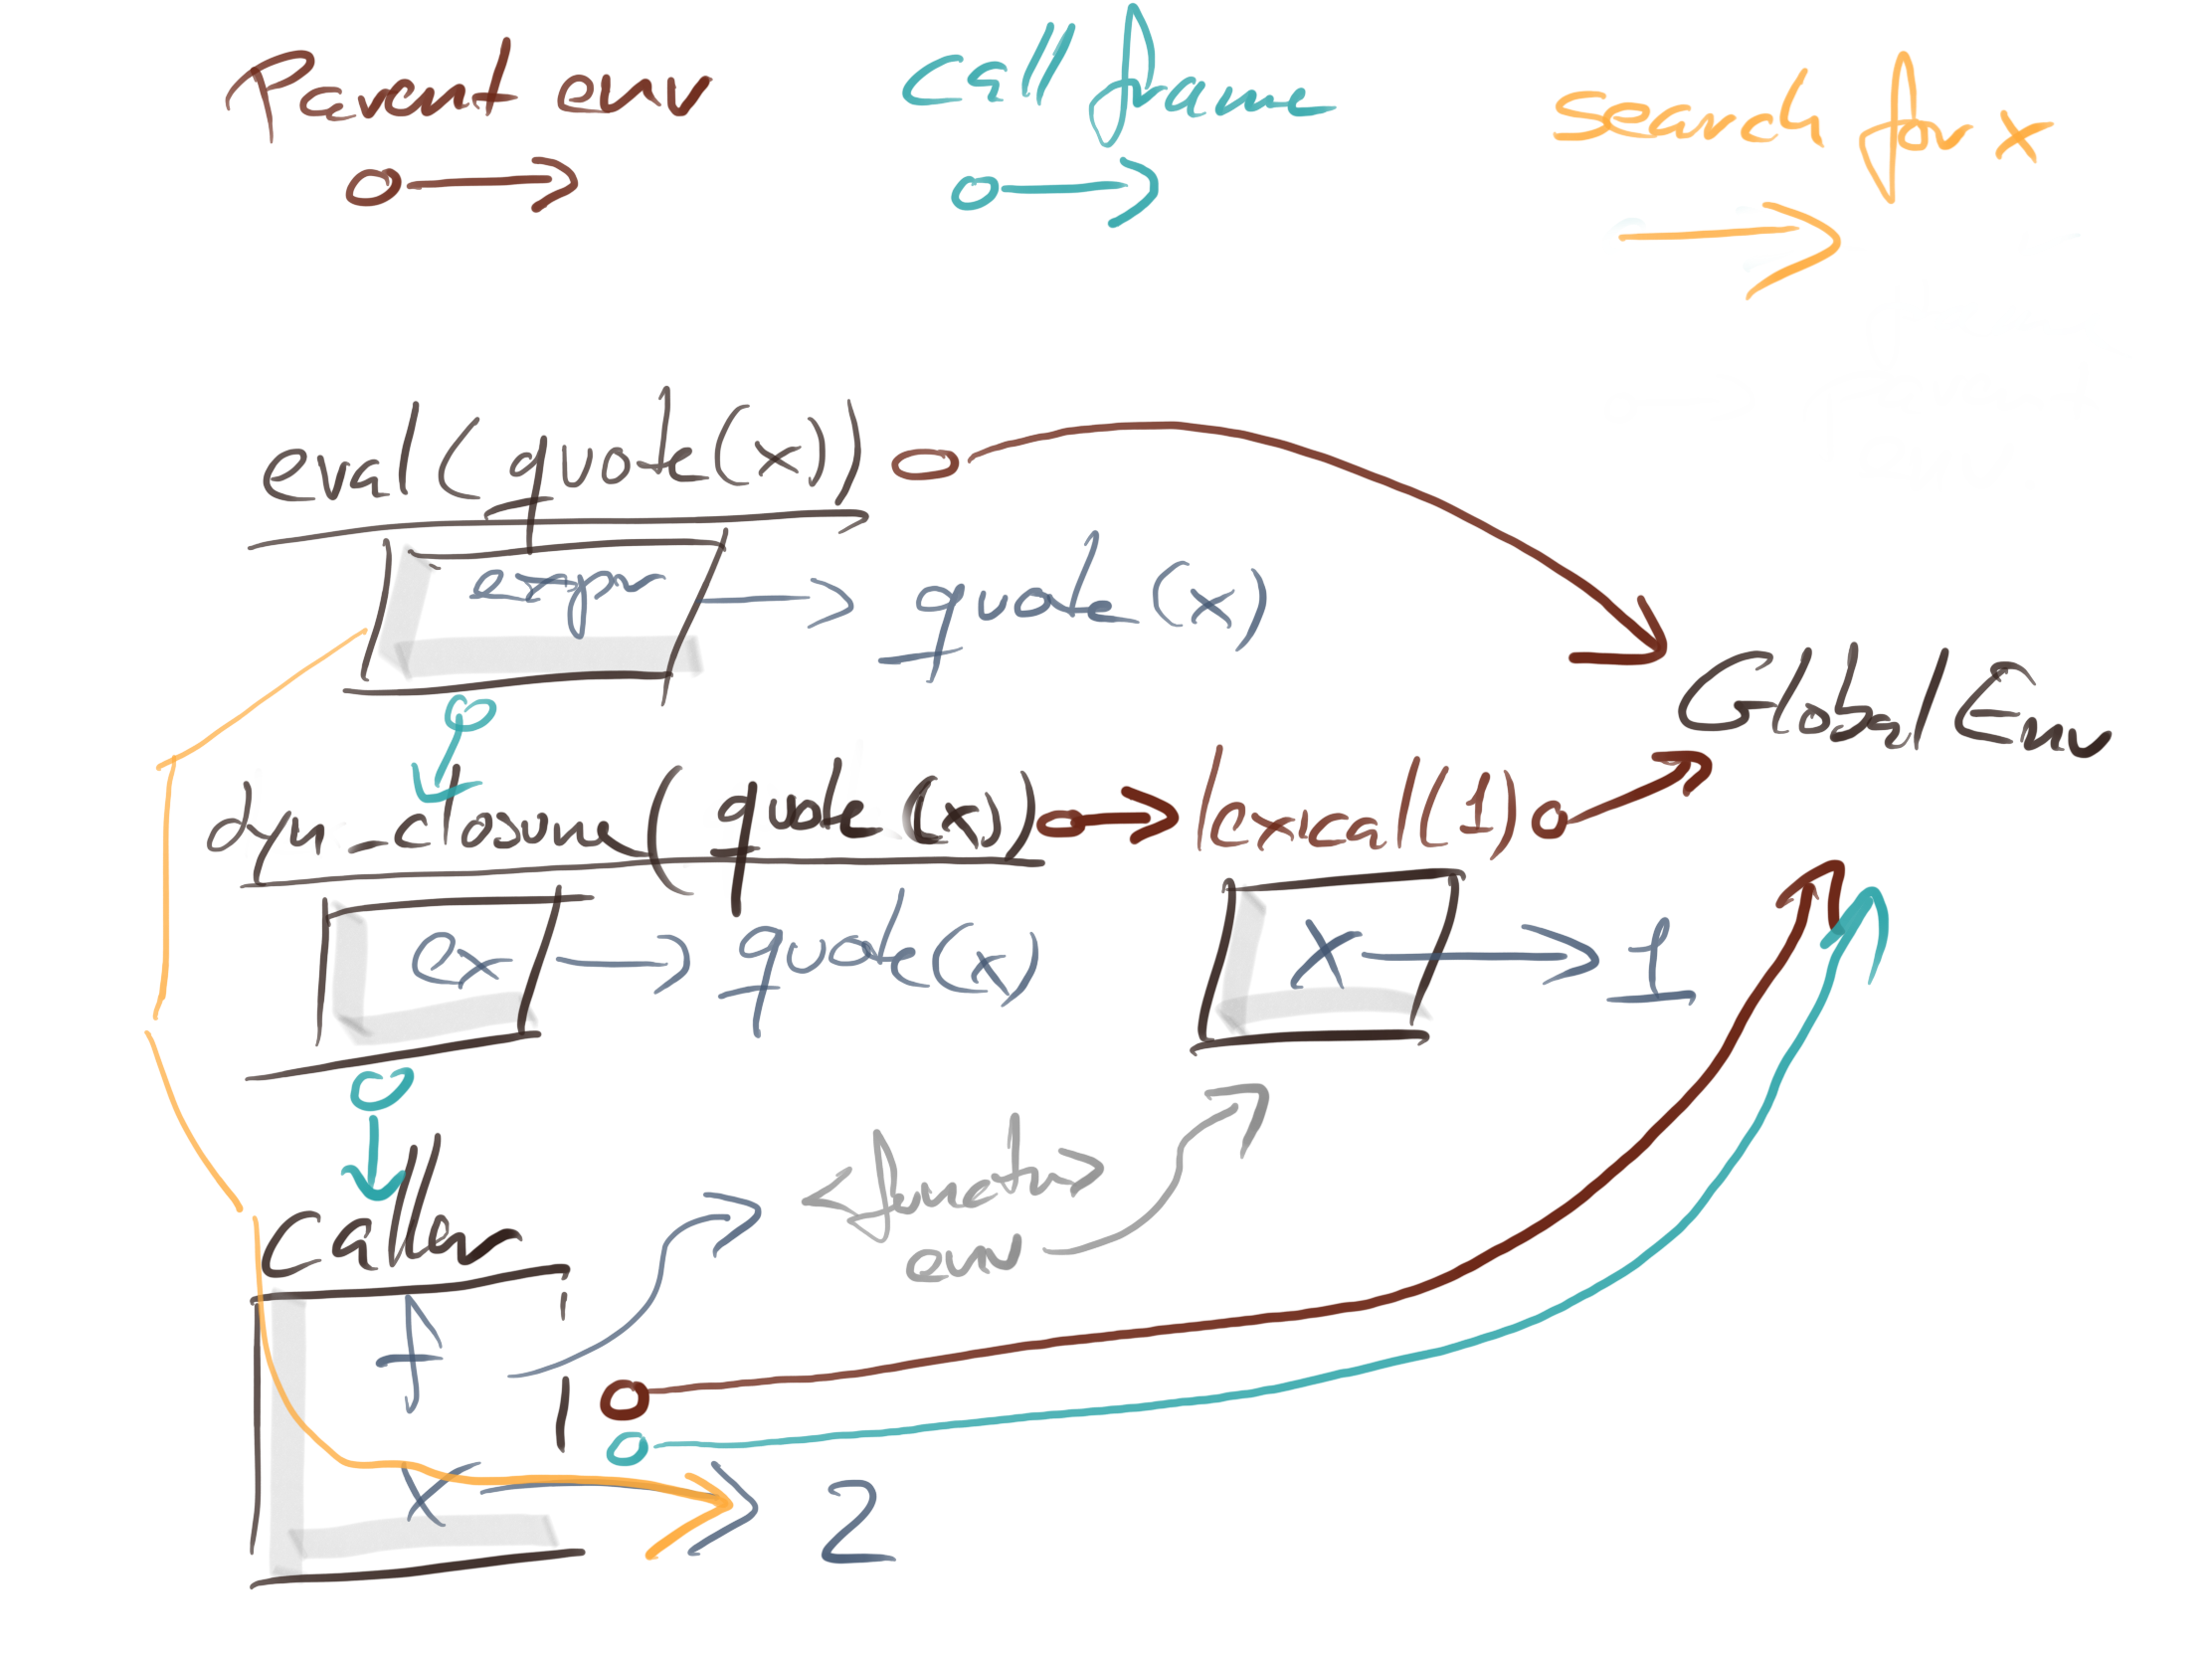 Parent env
call frame
search for x
eval(quote(x))
expr
quote(x)
GlobalEnv
dyn_closure(quote(x))
lexical(1)
ex
quote(x)
x
1
<functn>
env
Caller
f
x
2